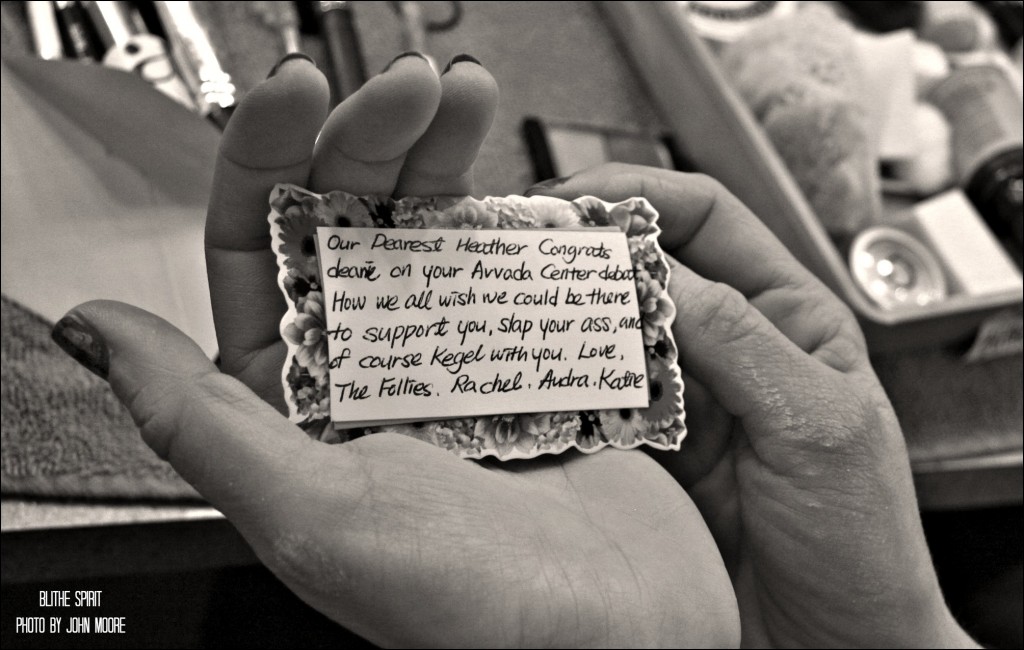 Our Dearest Heather Congrats
dearie on your Arvada Center debut
How we all wish we could be there
to support you, slap your ass, and
of course Kegel with you. Love,
The Follies. Rachel. Audra. Katie
BLITHE SPIRIT
PHOTO BY JOHN MOORE